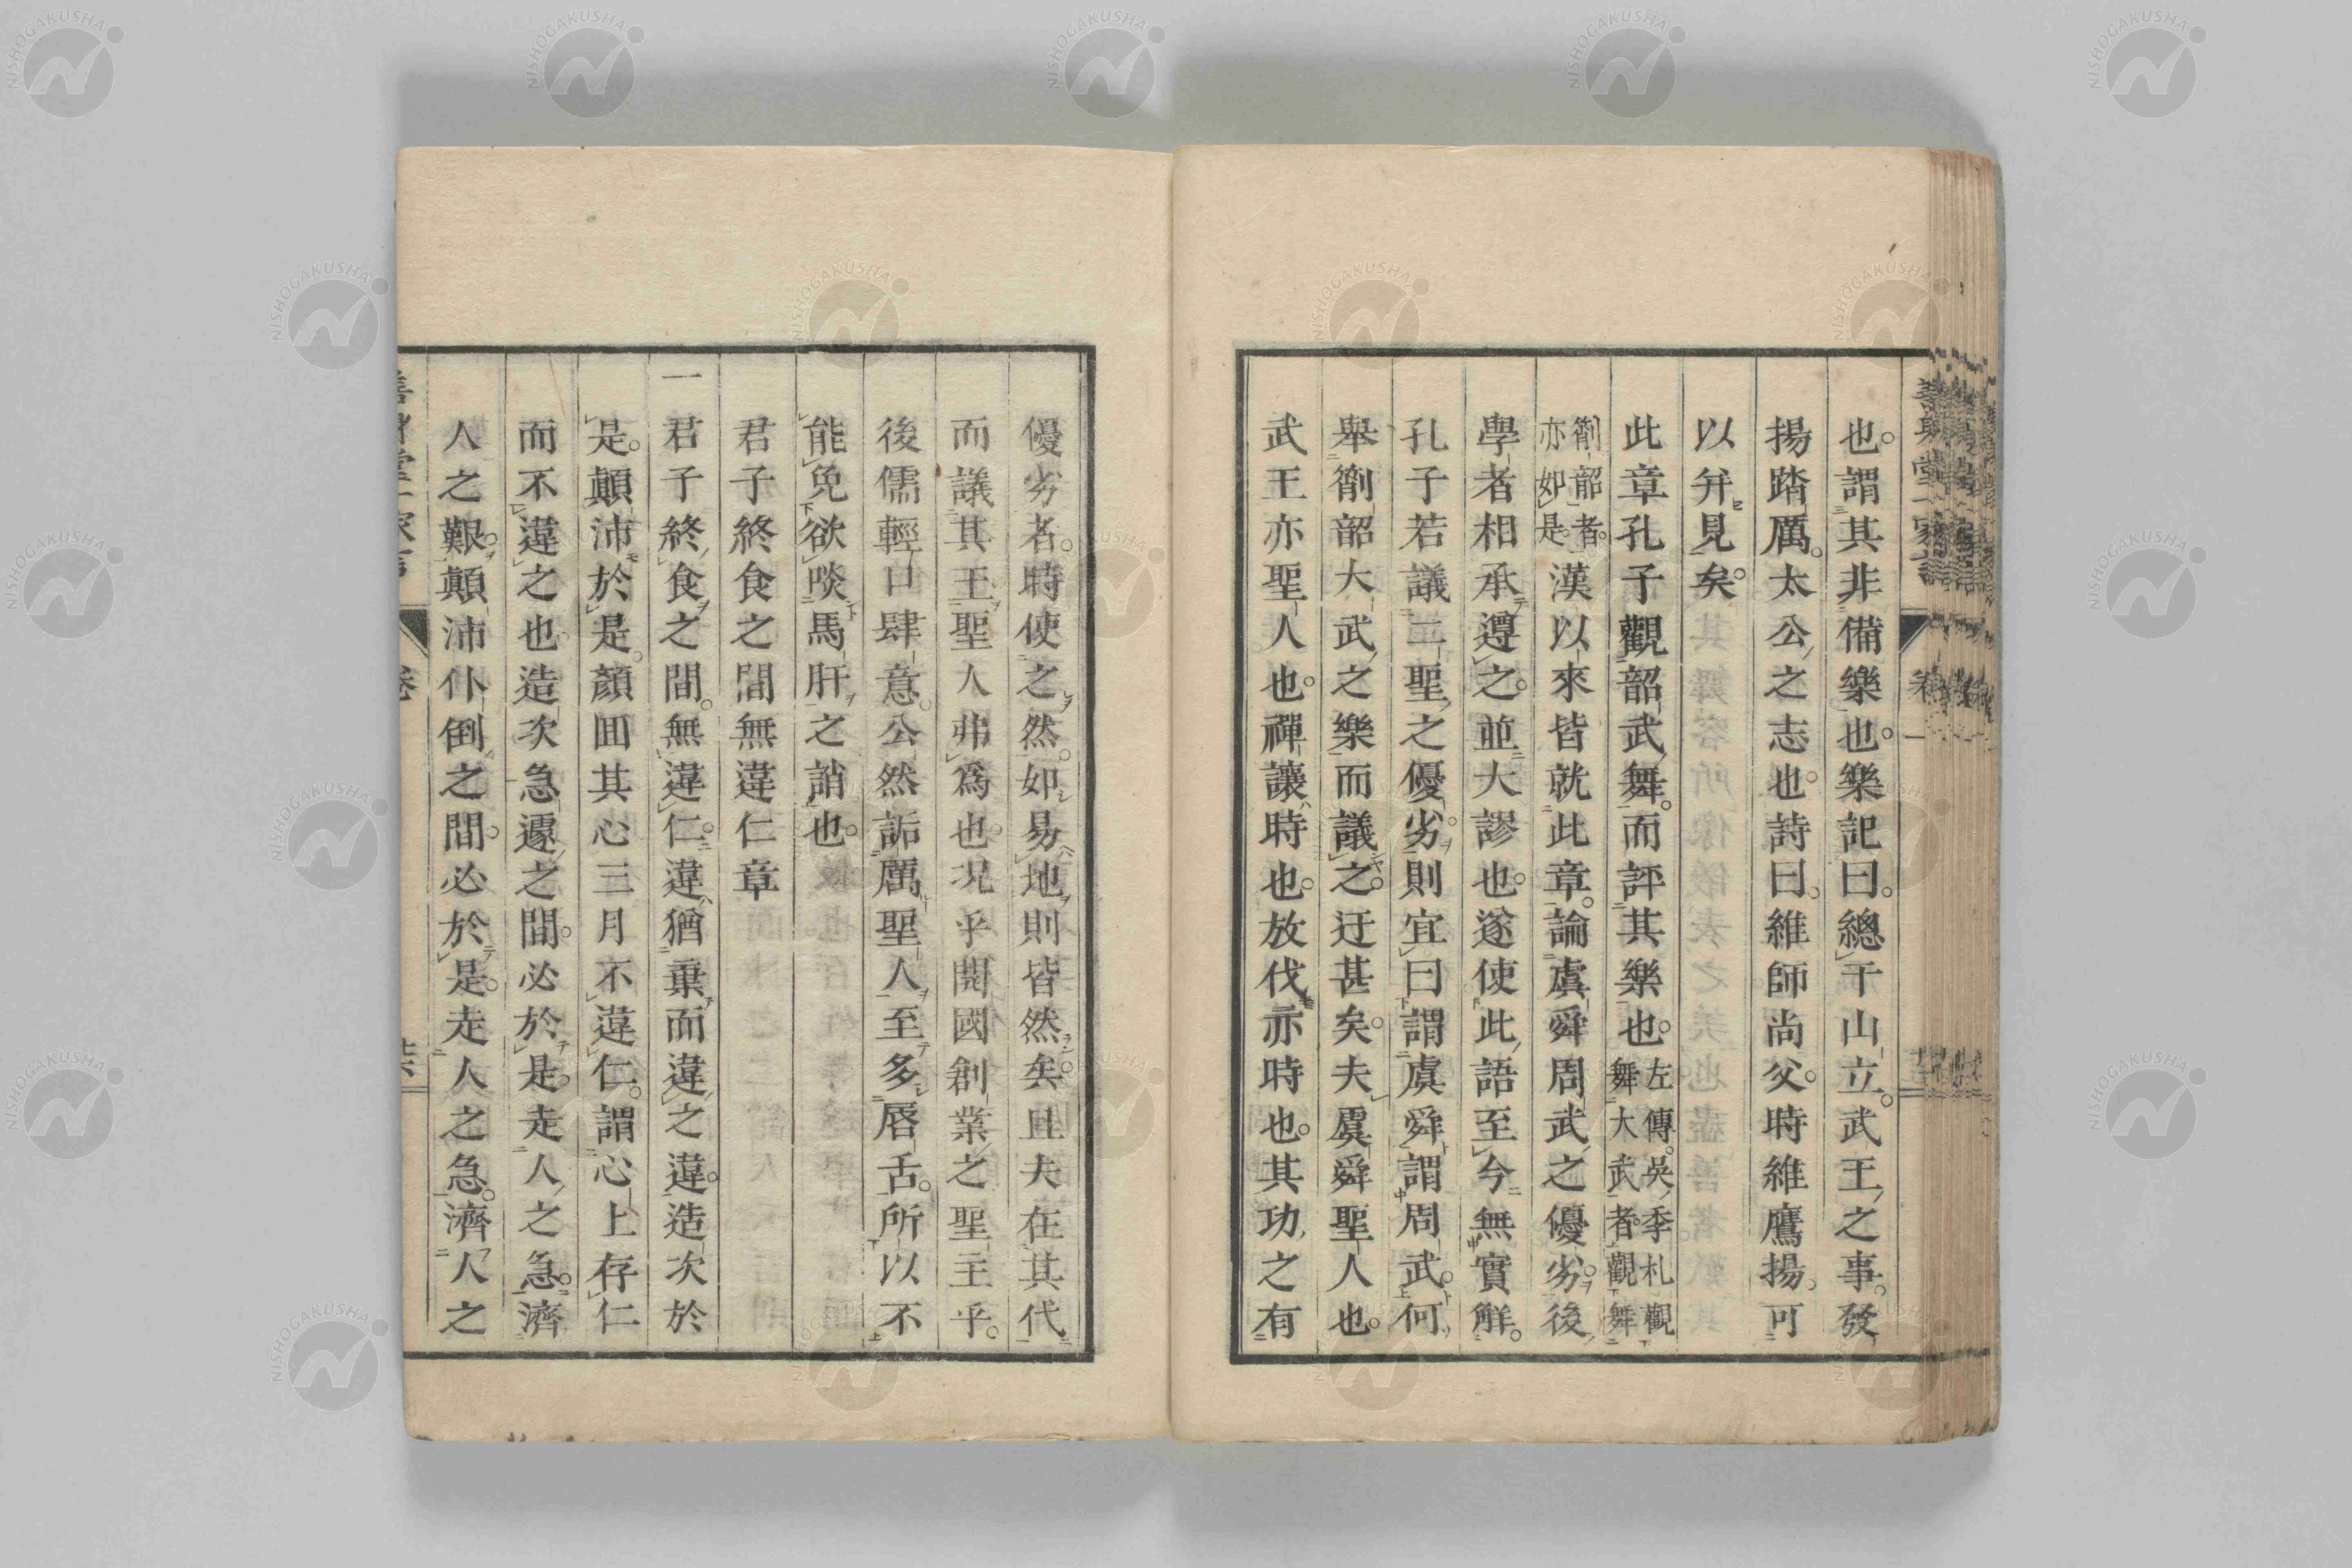 也謂其非備樂也樂記曰總干山立武王之事發
揚踏厲太公之志也詩曰維師尚父時維鷹揚可
以弁見矣
此章孔子觀韶武舞而評其樂也左傳吳季札觀舞大武者觀舞
箾韶者亦如是漢以來皆就此章論虞舜周武之優劣後
學者相承遵之並大謬也遂使此語至今無實解
孔子若議二聖之優劣則宜曰謂虞舜謂周武何
舉箾韶大武之樂而議之迂甚矣夫虞舜聖人也
武王亦聖人也禪讓時也放伐亦時也其功之有
優劣者時使之然如易地則皆然矣且夫在其代
而議其王聖人弗爲也况乎開國創業之聖主乎
後儒輕口肆意公然詬厲聖人至多唇舌所以不
能免欲啖馬肝之誚也
君子終食之間無違仁章
一君子終食之間無違仁違猶棄而違之違造次於
是顛沛於是顏回其心三月不違仁謂心上存仁
而不違之也造次急遽之間必於是走人之急濟
人之艱顛沛仆倒之間必於是走人之急濟人之
卷
NISHOGAKUSHA